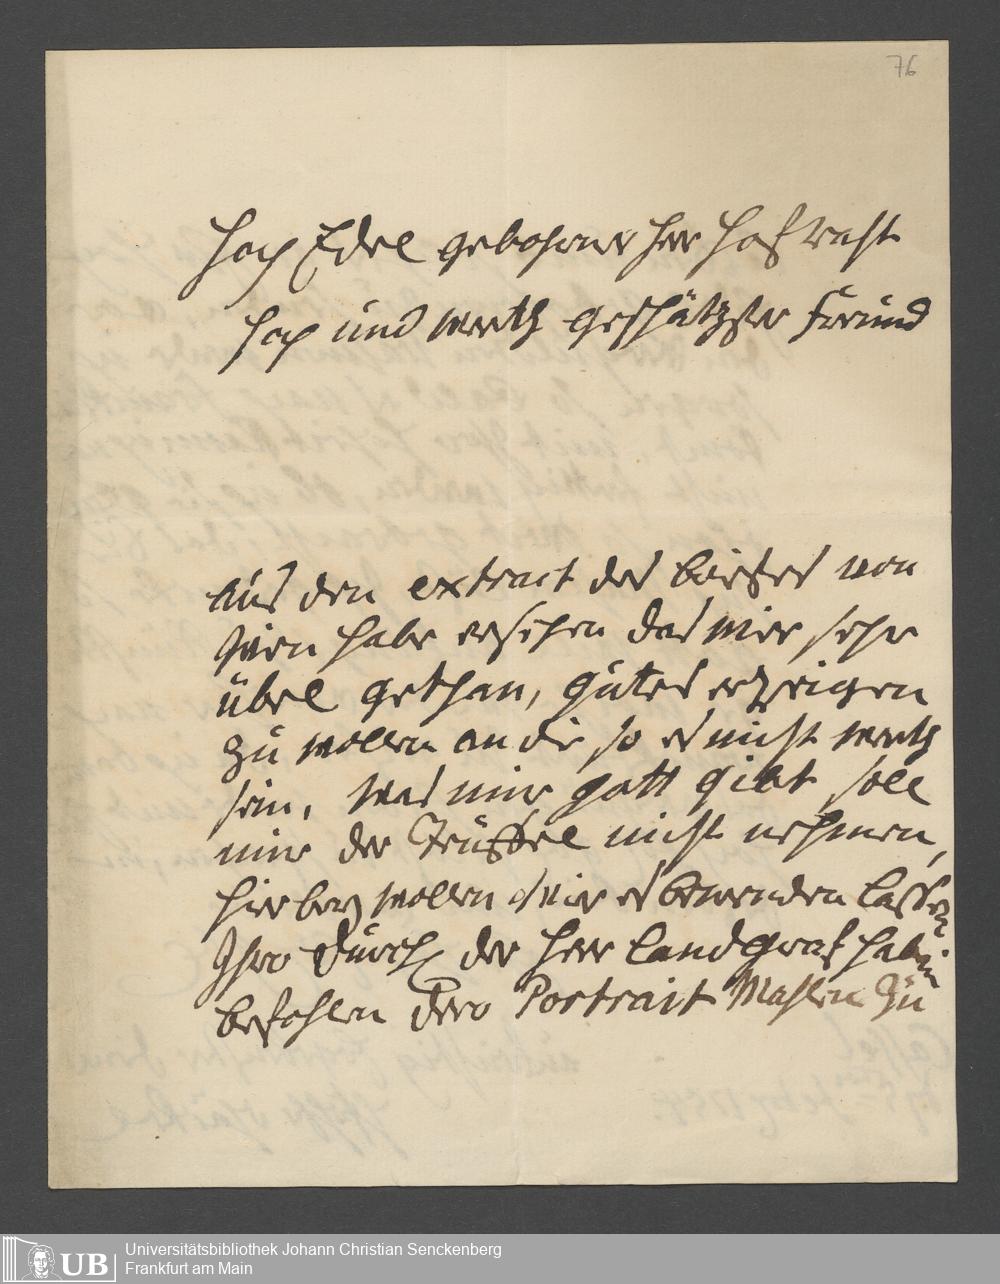 76
Hoch Edel gebohrner Herr Hoff Raht
Hoch und werth geschätzter Freund
Aus den extract des briefes von
Wien habe ersehen das wier sehr
übel gethan, gutes erzeigen
zu wollen an die so es nicht werth
sein, was mir gott gibt soll
mir der Teuffel nicht nehmen,
hier bey wollen wier es bewenden lassen
Ihro Durch der Herr landgraf haben
befohlen dero Portrait Mahlen zu
Universitätsbibliothek Johann Christian Senckenberg
Frankfurt am Main
UB